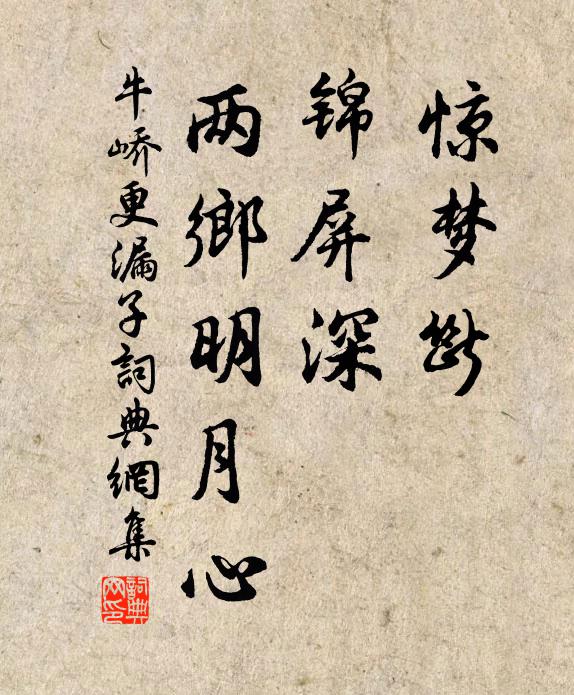 惊梦断
锦屏深
两鄉明月心
牛峤更漏子詞典網集
詞典网印